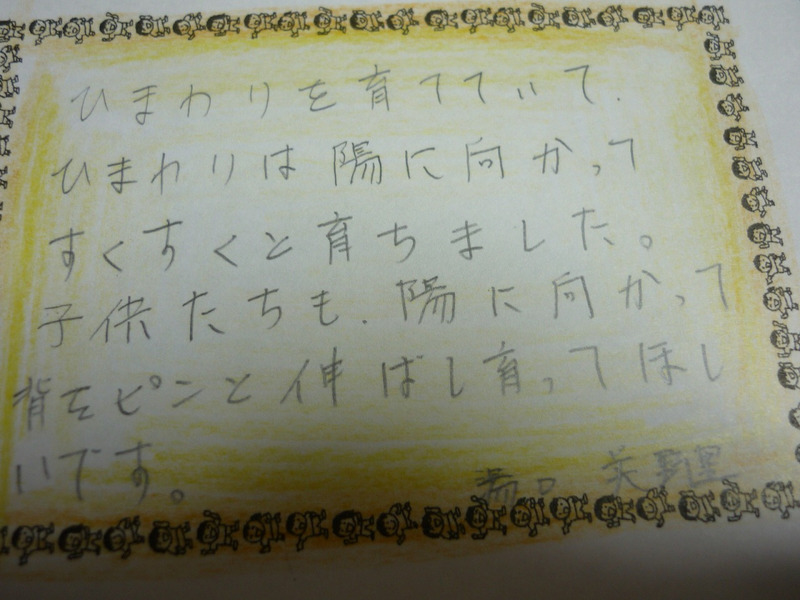 ひまわりを育てていて、
ひまわりは陽に向かって
すくすくと育ちました。
子供たちも、陽に向かって
背をピンと伸ばし育ってほし
いです。